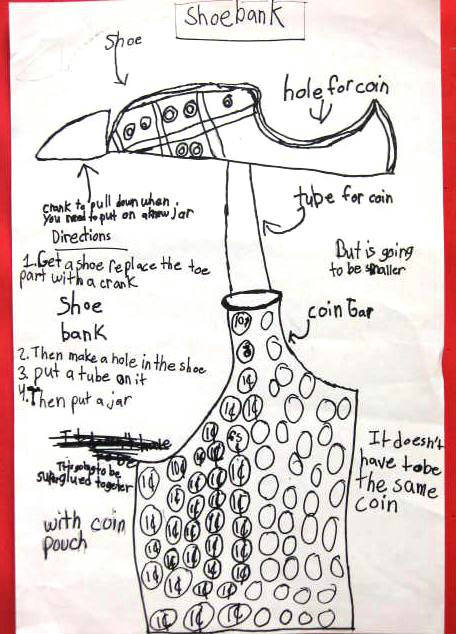 Shoebank
Shoe
hole for coin
crank to pull down when
you need to put on a new jar
tube for coin
Directions
1. Get a shoe replace the toe
part with a crank
But is going
to be smaller
Shoe
bank
coin Gar
2. Then make a hole in the shoe
3. put a tube on it
4. Then put a jar
This going to be
superglued together
with coin
pouch
It doesn't
have to be
the same
coin
10¢
1¢ 1¢
1¢
10¢ 1¢ 1¢
1¢ 1¢ 1¢ 1¢
1¢ 1¢ 1¢ 1¢
1¢ 1¢ 1¢ 1¢
1¢ 1¢ 1¢ 1¢
1¢ 1¢ 1¢ 1¢
1¢ 1¢ 1¢